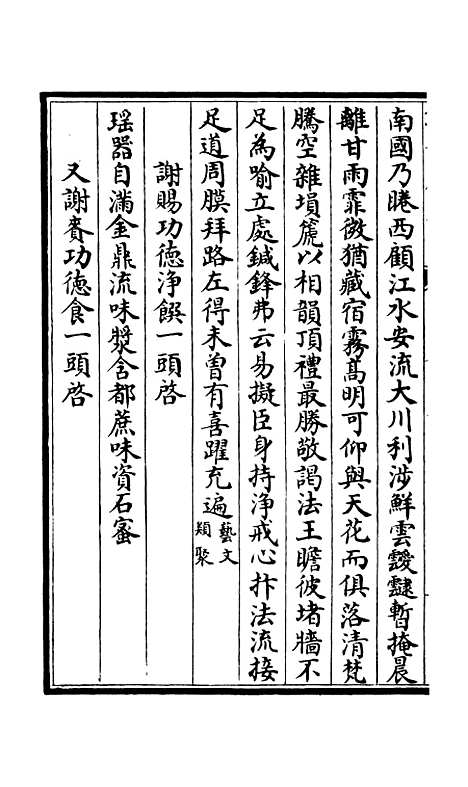 南國乃睠西顧江水安流大川利涉鮮雲靉靆暫掩晨
離甘雨霏微猶藏宿霧髙明可仰與天花而俱落清梵
騰空雜塤箎以相韻頂禮最勝敬謁法王瞻彼堵牆不
足為喻立處鍼鋒弗云易擬臣身持浄戒心抃法流接
足道周膜拜路左得未曽有喜躍充遍藝文類聚
謝賜功徳浄饌一頭啓
瑶器自滿金鼎流味漿含都蔗味資石蜜
又謝賚功徳食一頭啓